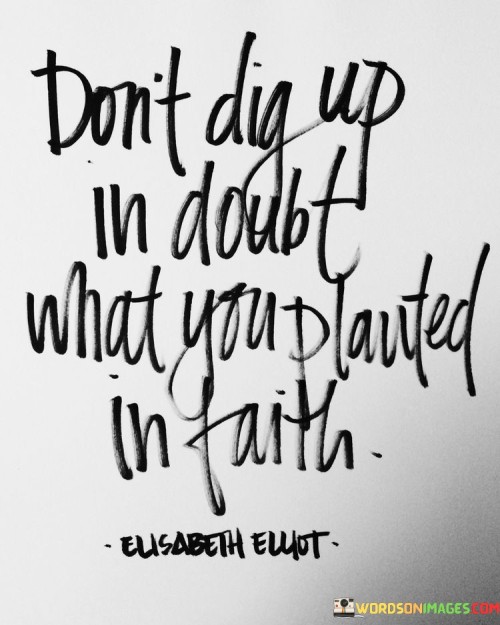 Don't dig up
in doubt
what you planted
in faith.
· ELISABETH ELLIOT ·
WORDSONIMAGES.COM